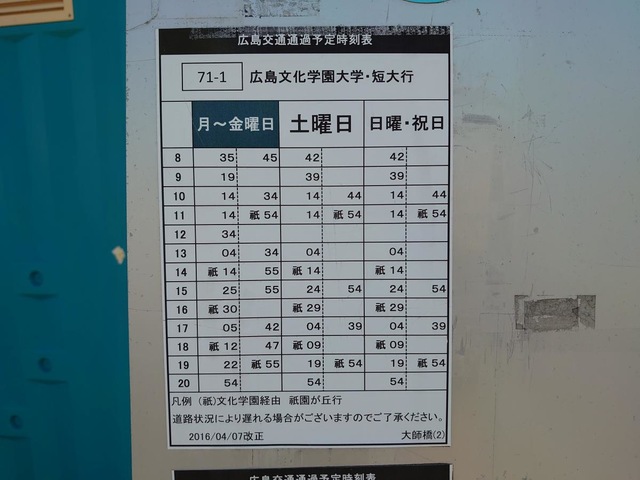 広島交通通過予定時刻表
71-1 広島文化学園大学・短大行
月～金曜日 土曜日 日曜・祝日
8 35 45 42 42
9 19 39 39
10 14 34 14 44 14 44
11 14 祇54 14 祇54 14 祇54
12 34
13 04 34 04 04
14 祇14 55 祇14 祇14
15 25 55 24 54 24 54
16 祇30 祇29 祇29
17 05 42 04 39 04 39
18 祇12 47 祇09 祇09
19 22 祇55 19 祇54 19 祇54
20 54 54 54
凡例 (祇)文化学園経由 祇園が丘行
道路状況により遅れる場合がございますのでご了承ください。
2016/04/07改正 大師橋(2)
広島交通通過予定時刻表